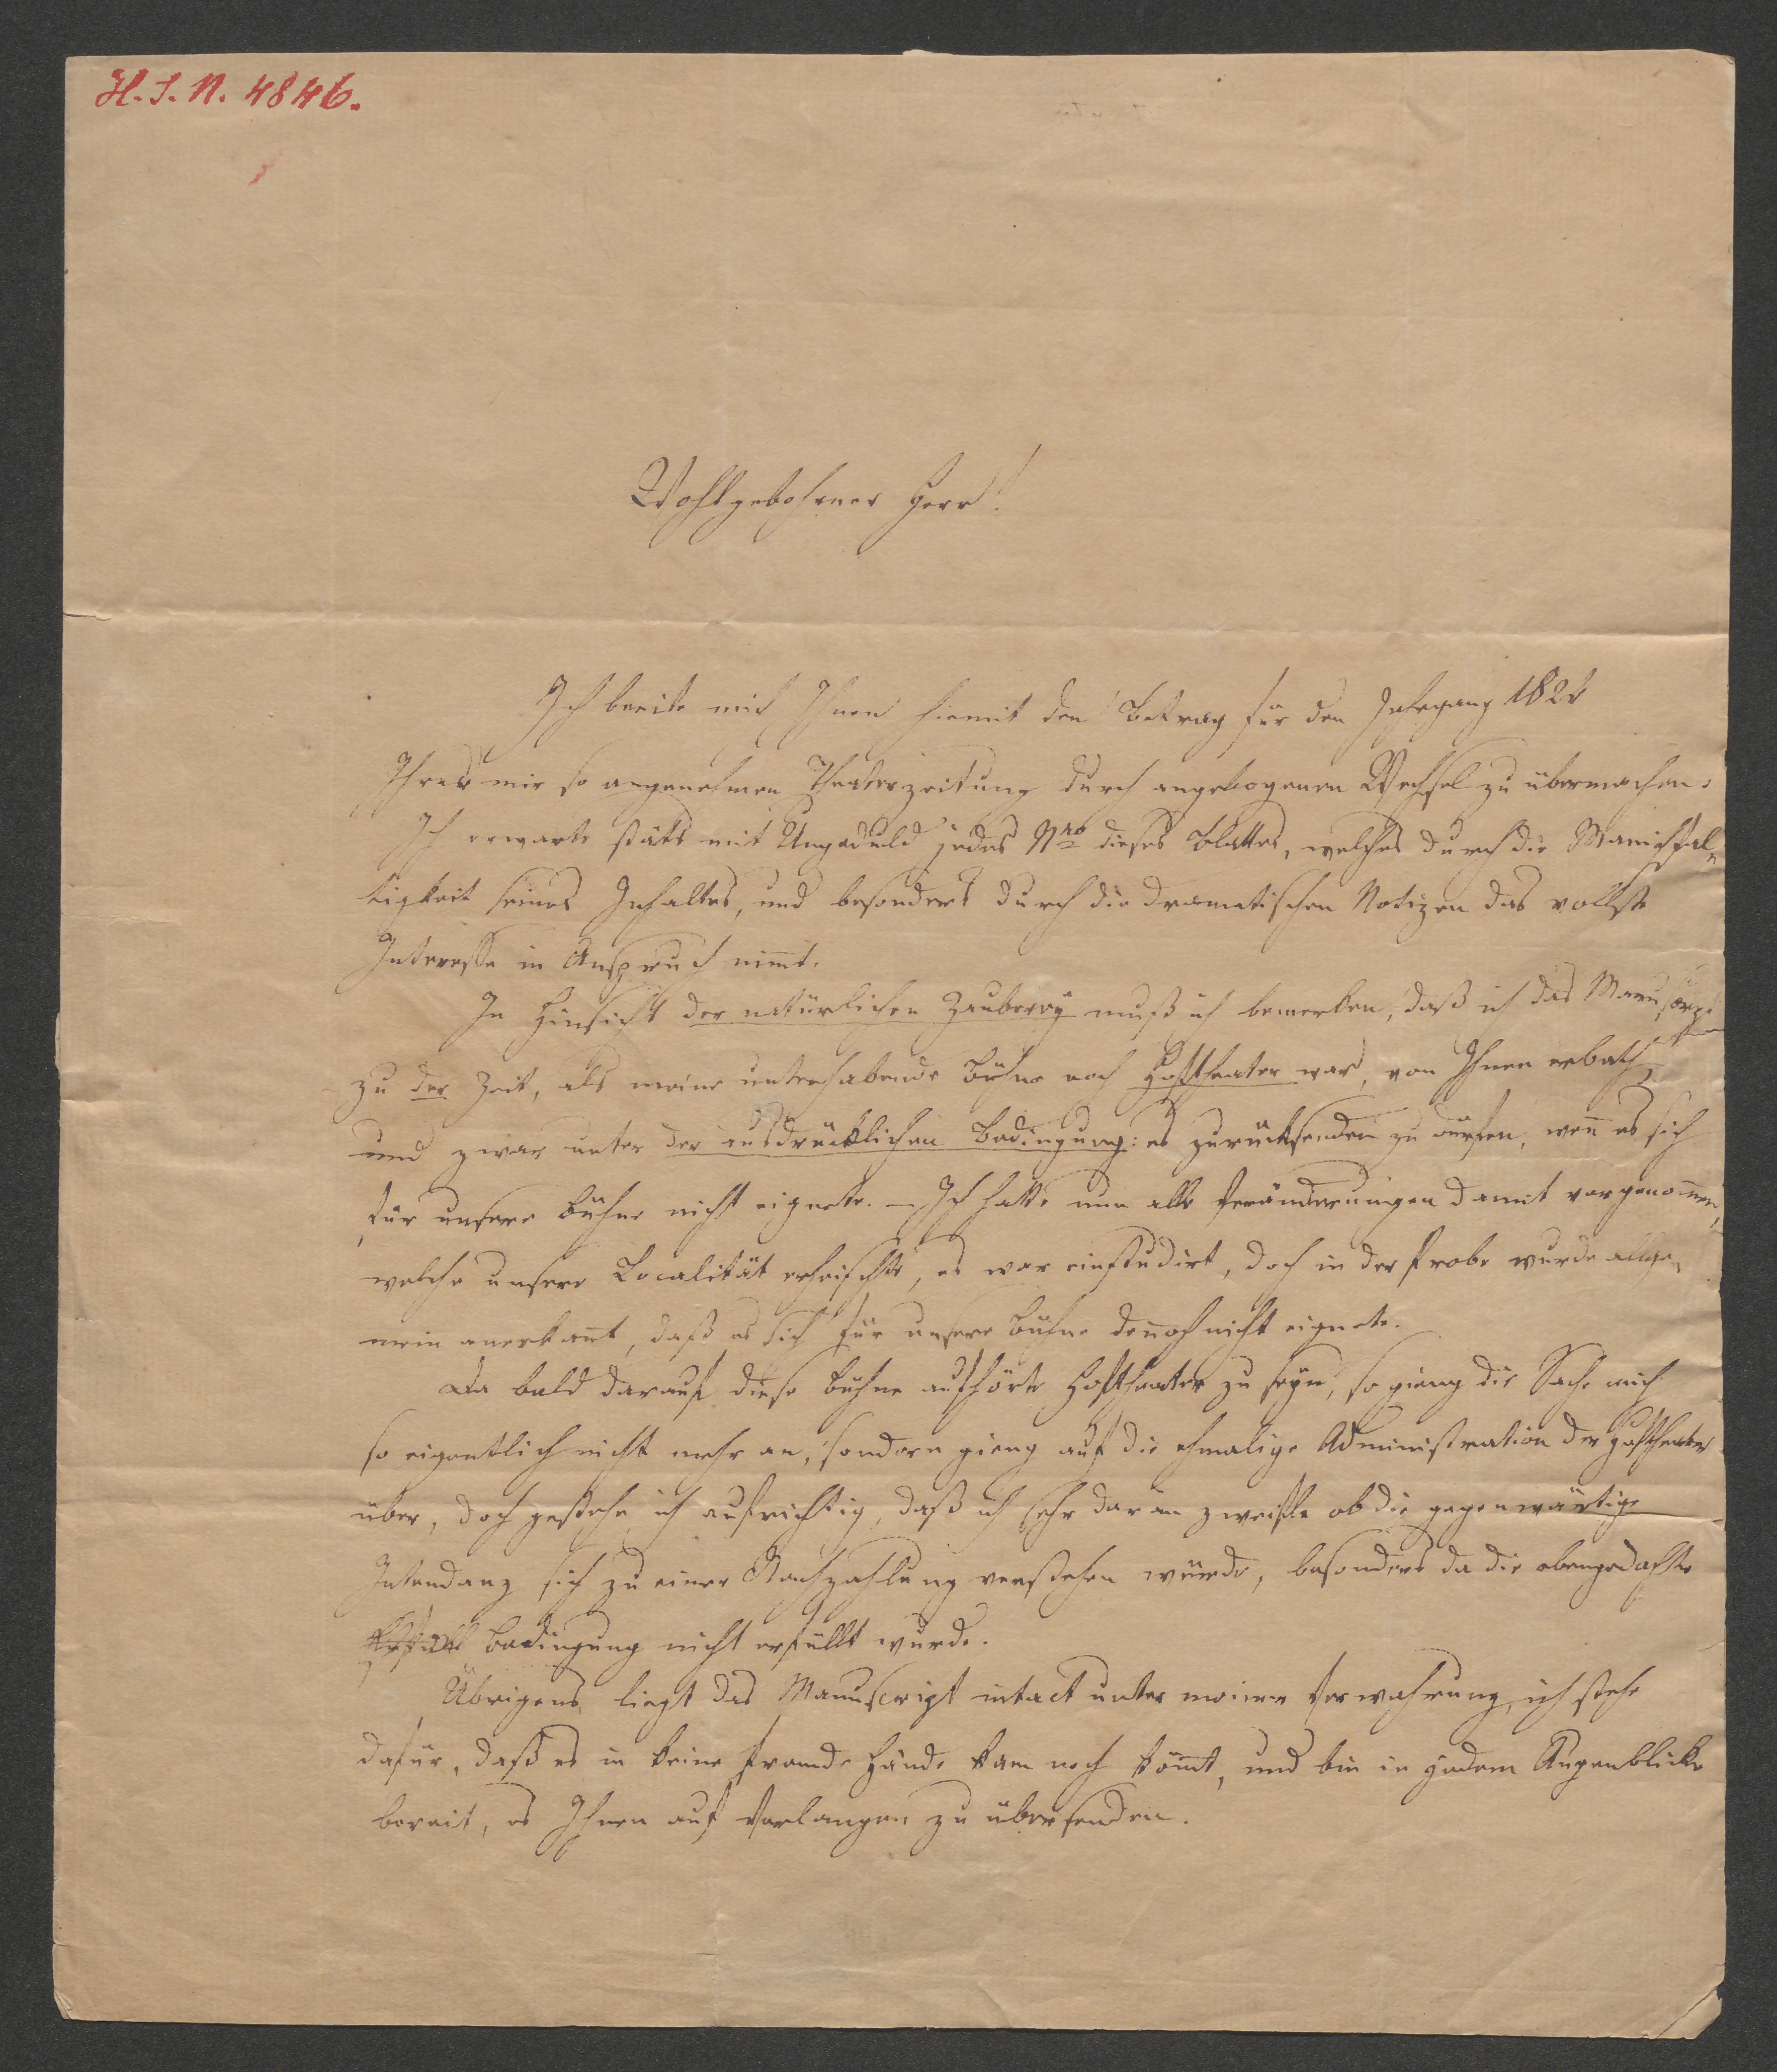 H.I.N. 4846.
Wohlgebohrner Herr!
Ich beeile mich Ihnen hiemit den Betrag für den Jahrgang 182
Ihres mir so angenehmen Theaterzeitung durch angebogenen Wechsel zu übermachen.
Ich erwarte stäts mit Ungeduld jedes Nro dieses Blattes, welches durch die Manichfal„
tigkeit seines Inhaltes, und besonders durch die dramatischen Notizen das vollste
Interesse in Anspruch nimt.
In Hinsicht der natürlichen Zauberey muß ich bemerken, daß ich das Manuscript
zu der Zeit, als meine unterhabende Bühne noch Hoftheater war, von Ihnen erbath,
und zwar unter der ausdrücklichen Bedingung: es zurücksenden zu dürfen, wen̅ es sich
für unsere Bühne nicht eignete. – Ich hatte nun alle Veränderungen damit vorgenom̅en,
welche unsere Localität erheischte, es war einstudirt, doch in der Probe wurde allge„
mein anerkan̅t, daß es sich für unsere Bühne den̅och nicht eignete.
Da bald darauf diese Bühne aufhörte Hoftheater zu seyn, so gieng die Sache mich
so eigentlich nicht mehr an, sondern gieng auf die ehmalige Administration der Hoftheater
über, doch gestehe ich aufrichtig, daß ich sehr daran zweifle ob die gegenwärtige
Intendanz sich zu einer Nachzahlung verstehen würde, besonders da die obengedachte
Bedingung nicht erfüllt wurde.
Übrigens liegt das Manuscript intact unter meiner Verwahrung, ich stehe
dafür, daß es in keine fremde Hände kam noch kömt, und bin in jedem Augenblicke
bereit, es Ihnen auf Verlangen zu übersenden.